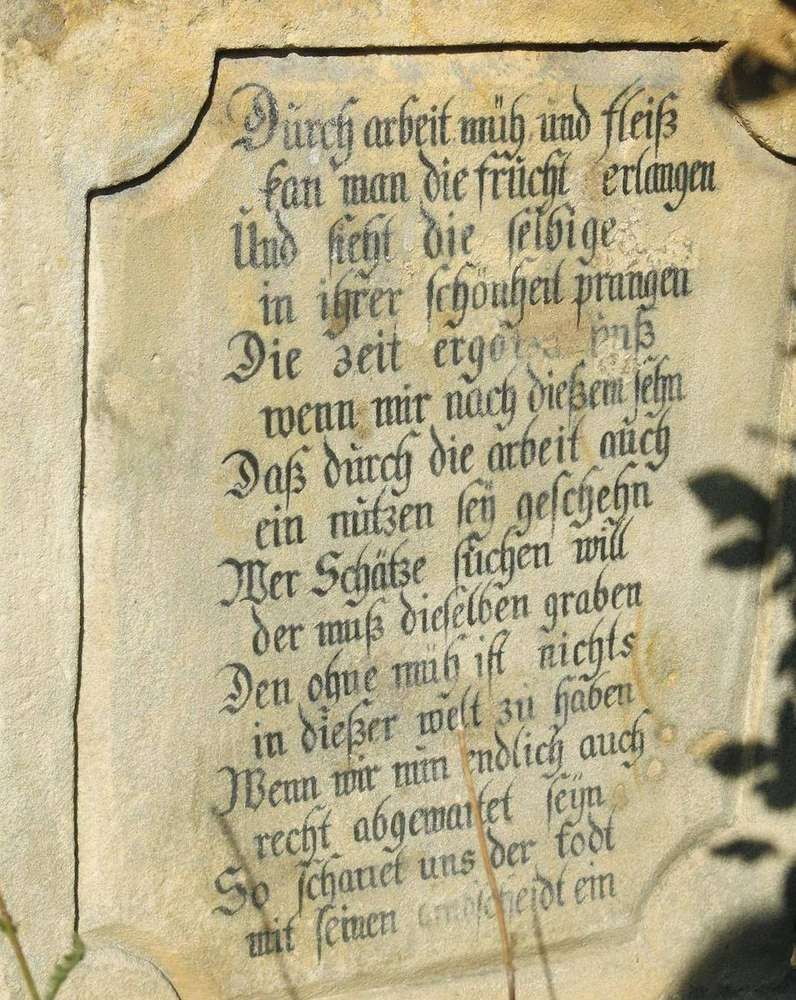 Durch arbeit müh und fleiß
kan man die frücht erlangen
Und sieht die selbige
in ihrer schönheit prangen
Die zeit unß
wenn mir nach dießem sehn
Daß durch die arbeit auch
ein nutzen seÿ geschehn
Wer Schätze suchen will
der muß dieselben graben
Den ohne müh ist nichts
in dießer welt zu haben
Wenn wir nun endlich auch
recht abgewartet seÿn
So schauet uns der todt
mit seinen ein